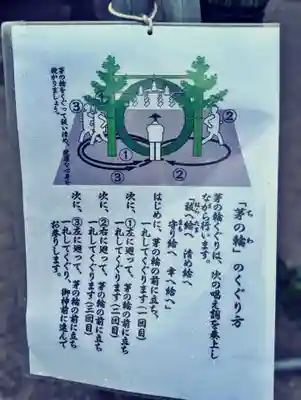 茅の輪をくぐって祓い清め、
「茅の輪」のくぐり方
ちのわ
茅の輪くぐりは、次の唱え詞を奏上し
ながら行います。
「祓へ給へ 清め給へ
守り給へ 幸へ給へ」
はじめに、茅の輪の前に立ち、
一礼してくぐります(一回目)
次に、①左に廻って、茅の輪の前に立ち
一礼してくぐります(二回目)
次に、②右に廻って、茅の輪の前に立ち
一礼してくぐります(三回目)
次に、③左に廻って、茅の輪の前に立ち
一礼してくぐり、御神前に進んで
お参りします。
③
②
①
③